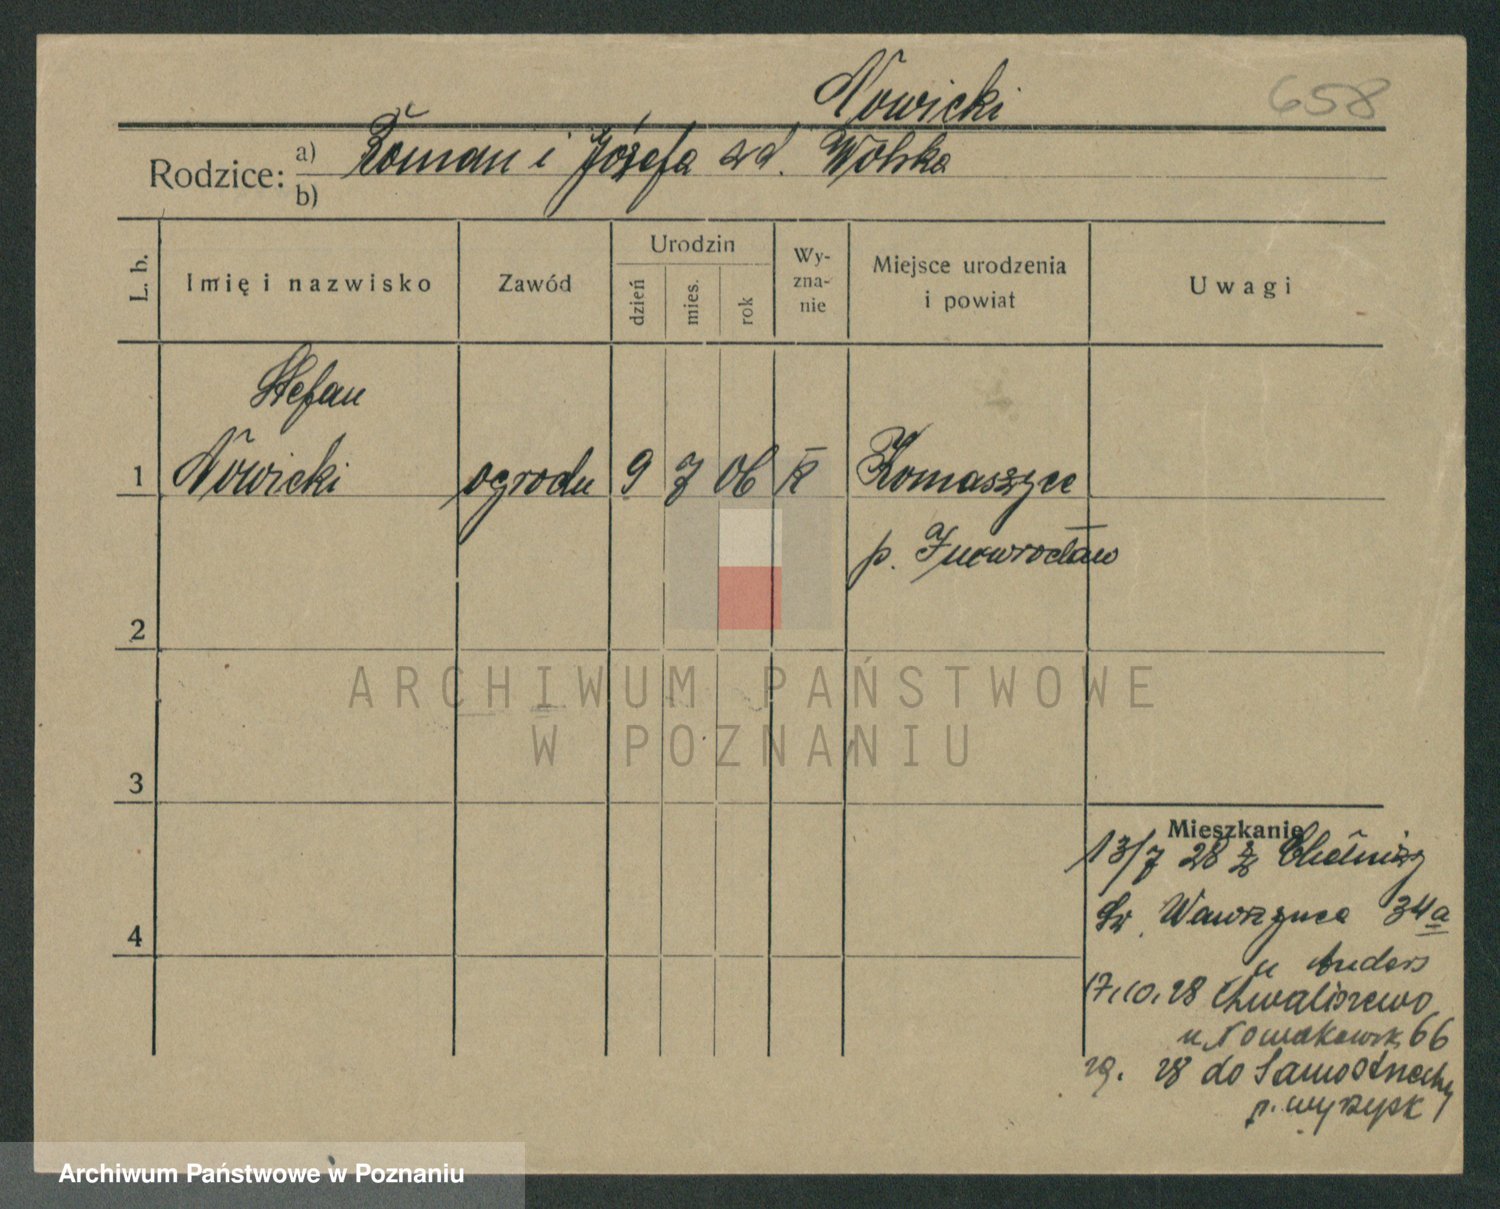 Nowicki
658
Rodzice: a) Roman i Józefa zd. Wolska
b)
L. b.
Imię i nazwisko
Zawód
Urodzin
dzień
mies.
rok
Wy-
zna-
nie
Miejsce urodzenia
i powiat
Uwagi
Stefan
1 Nowicki ogrodn 9 7 06 k Tomaszyce
p. Inowrocław
2
ARCHIWUM PAŃSTWOWE
W POZNANIU
3
Mieszkanie
13/7 28 z
Św. Wawrzynca 34a
4
u Anders
17.10.28 Chwaliszewo
u Nowakowsk 66
28 do Samostrzel
p. wyrzysk
Archiwum Państwowe w Poznaniu